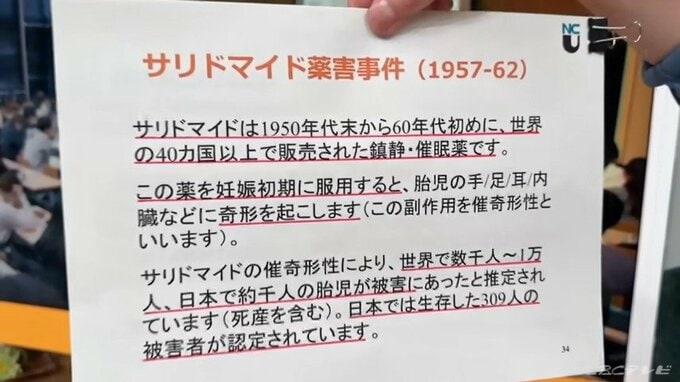 NC
U
サリドマイド薬害事件（1957-62）
サリドマイドは1950年代末から60年代初めに、世界
の40カ国以上で販売された鎮静・催眠薬です。
この薬を妊娠初期に服用すると、胎児の手/足/耳/内
臓などに奇形を起こします（この副作用を催奇形性と
いいます）。
サリドマイドの催奇形性により、世界で数千人～1万
人、日本で約千人の胎児が被害にあったと推定され
ています（死産を含む）。日本では生存した309人の
被害者が認定されています。
34
CBCテレビ